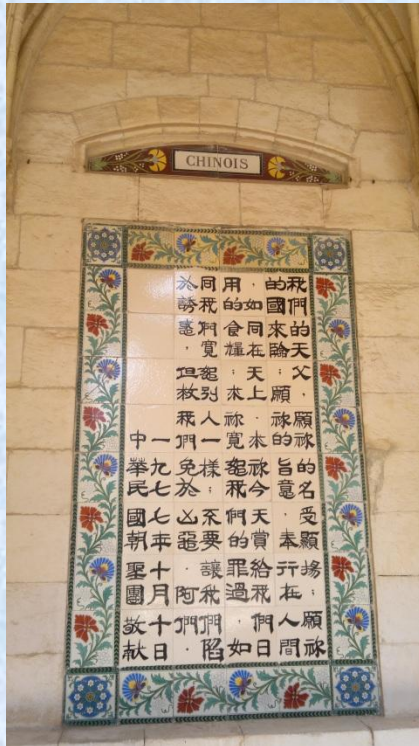 CHINOIS
我們的天父，願祢的名受顯揚；願祢
的國來臨；願祢的旨意，奉行在人間
，如同在天上。求祢今天賞給我們日
用的食糧；求祢寬恕我們的罪過，如
同我們寬恕別人一樣；不要讓我們陷
於誘惑。但救我們免於凶惡。阿們。
一九七七年十月十日
中華民國朝聖團敬獻